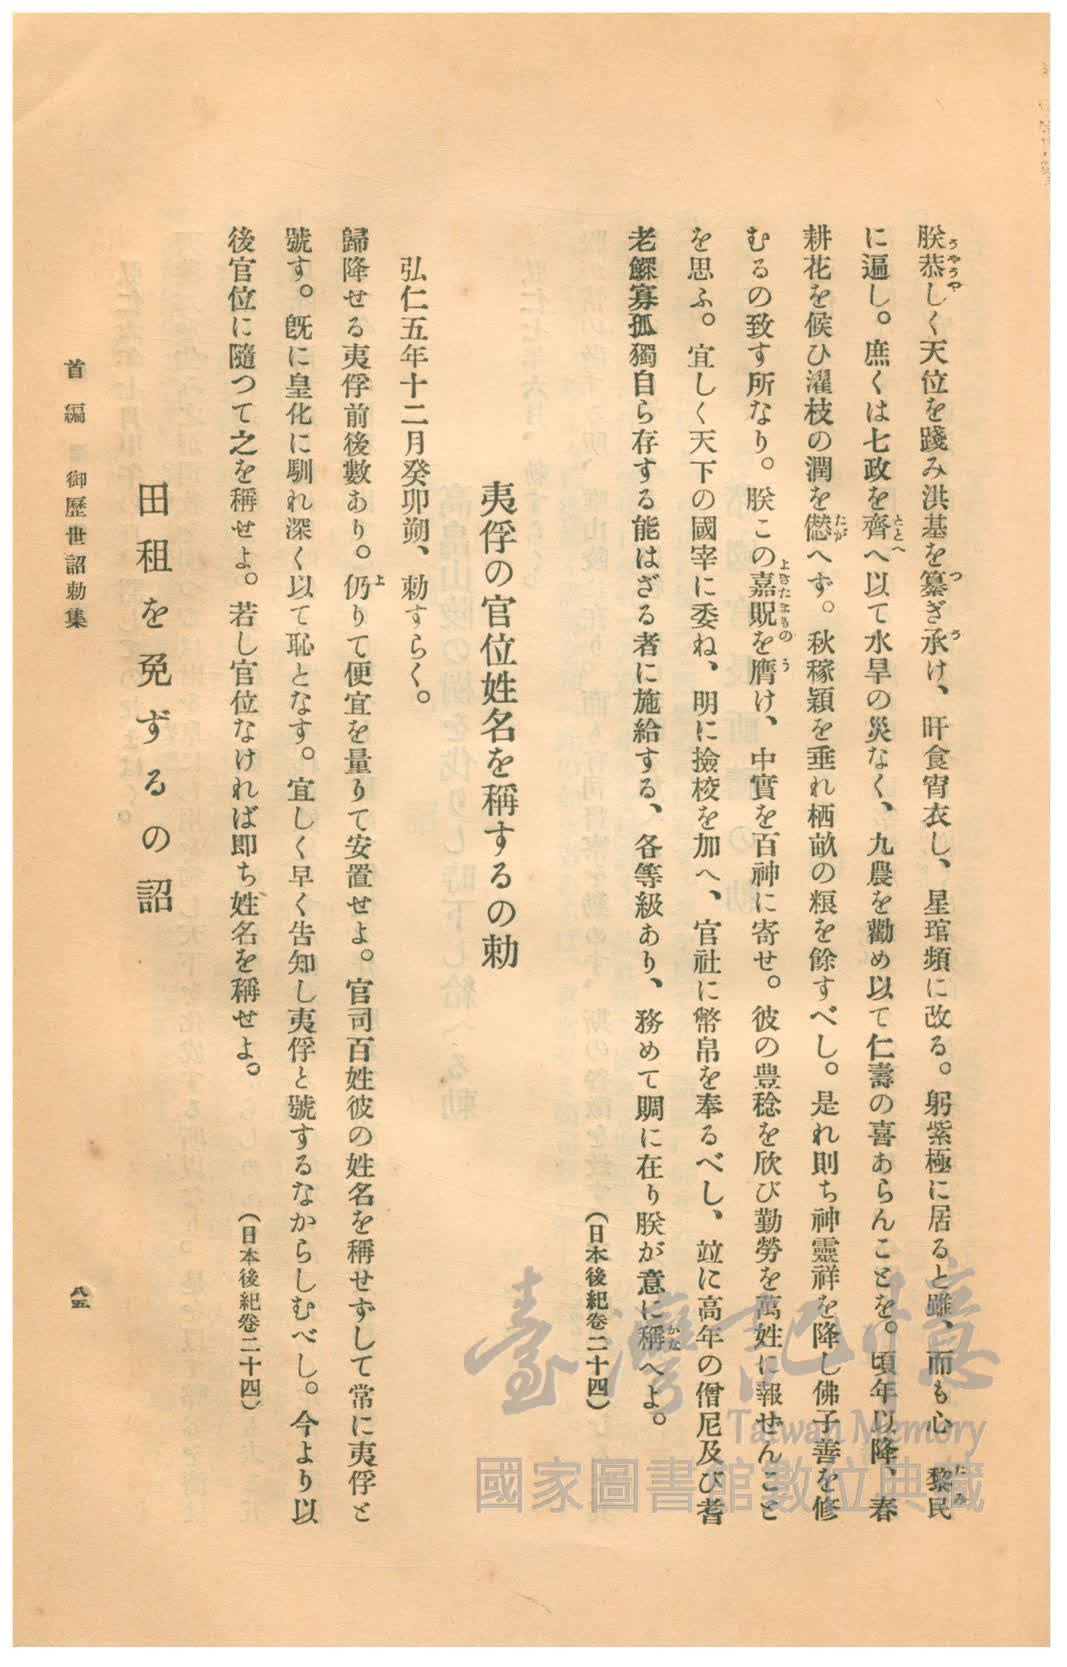 朕恭しく天位を踐み洪基を纂ぎ承け、旰食宵衣し、星琯頻に改る。躬紫極に居ると雖、而も心　黎民
に遍し。庶くは七政を齊へ以て水旱の災なく、九農を勸め以て仁壽の喜あらんことを。頃年以降、春
耕花を候ひ濯枝の潤を愆へず。秋稼穎を垂れ栖畝の粮を餘すべし。是れ則ち神靈祥を降し佛子善を修
むるの致す所なり。朕この嘉貺を膺け、中實を百神に寄せ。彼の豊稔を欣び勤勞を萬姓に報せんこと
を思ふ。宜しく天下の國宰に委ね、明に撿校を加へ、官社に幣帛を奉るべし、竝に高年の僧尼及び耆
老鰥寡孤獨自ら存する能はざる者に施給する、各等級あり、務めて賙に在り朕が意に稱へよ。
（日本後紀卷二十四）
夷俘の官位姓名を稱するの勅
弘仁五年十二月癸卯朔、勅すらく。
歸降せる夷俘前後數あり。仍りて便宜を量りて安置せよ。官司百姓彼の姓名を稱せずして常に夷俘と
號す。旣に皇化に馴れ深く以て恥となす。宜しく早く告知し夷俘と號するなからしむべし。今より以
後官位に隨つて之を稱せよ。若し官位なければ卽ち姓名を稱せよ。
（日本後紀卷二十四）
田租を免ずるの詔
首編　御歷世詔勅集
八五
臺灣記憶
Taiwan Memory
國家圖書館數位典藏